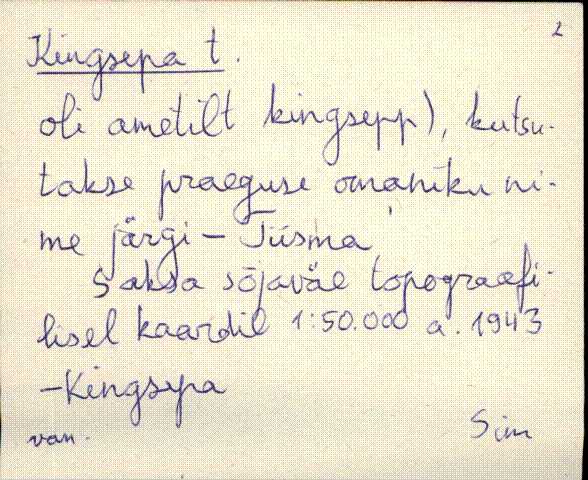 2
Kingsepa t.
oli ametilt kingsepp), kutsu-
takse praeguse omaniku ni-
me järgi – Tiisma
Saksa sõjaväe topograafi-
lisel kaardil 1:50.000 a. 1943
– Kingsepa
van. Sim